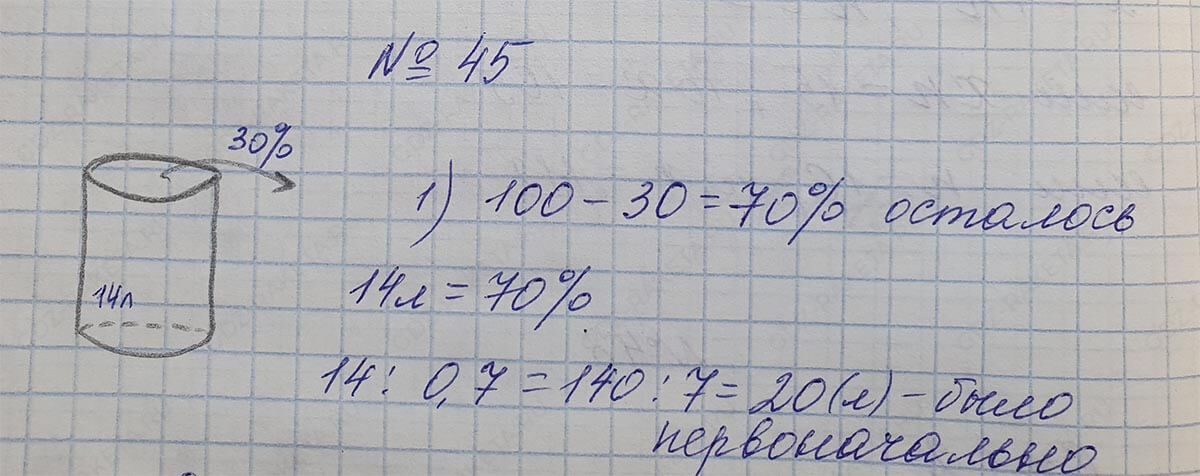 № 45
30%
1) 100 - 30 = 70% осталось
14л
14л = 70%
14 : 0,7 = 140 : 7 = 20(л) - было
первоначально